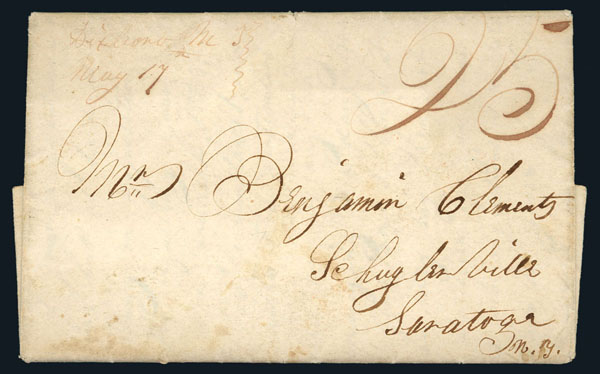 M. T.
May 17
25
Mr Benjamin Clements
Schuylerville
Saratoga
N. Y.